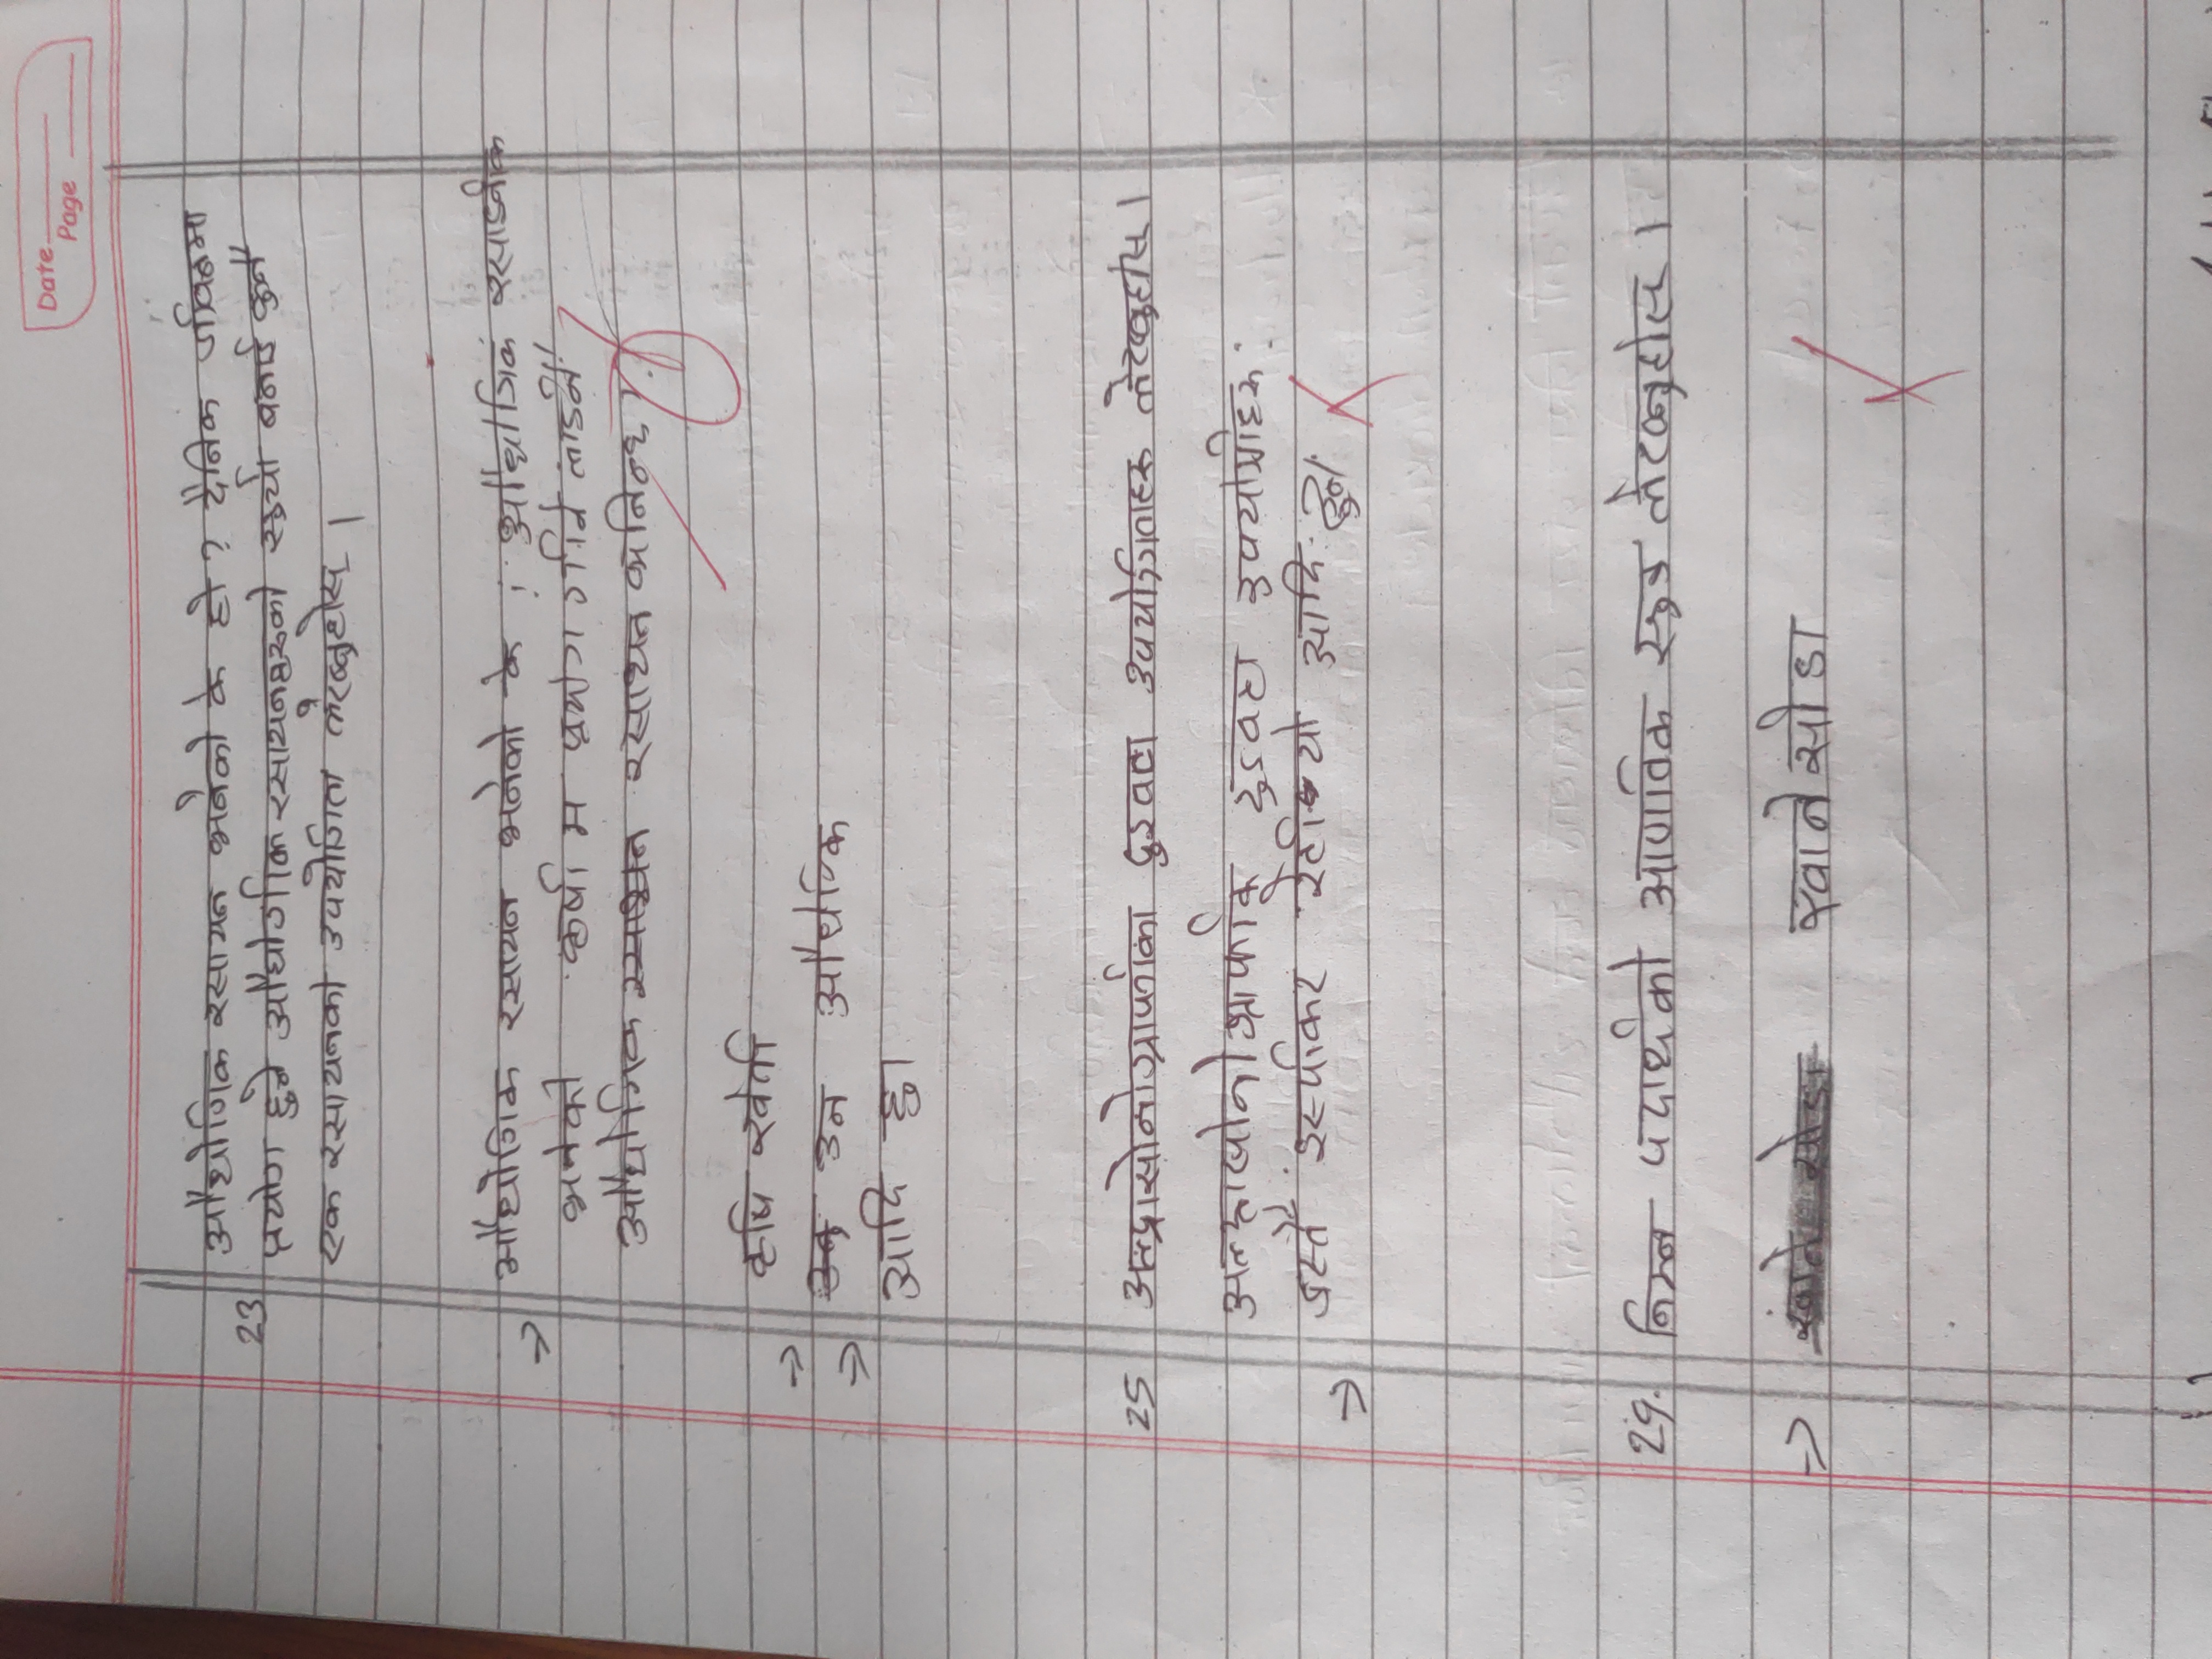 Date
Page
औद्योगिक रसायन भनेको के हो? दैनिक जीवनमा
23 प्रयोग हुने औद्योगीक रसायनहरुको सूची बनाई कुनै
एक रसायनको उपयोगिता लेख्नुहोस् ।
औद्योगिक रसायन भनेको के ! औद्योगिक
→
भनेको कृषी म प्रयोग गरिने लाइनै
औद्योगिक रसायन भनिन्छ
कृषि खेती
→
उन औद्योगिक
→
आदि हुा
25 अल्ट्रासोनोग्राफीका दुइवटा उपयोगिताहरु लेख्नुहोस् ।
दुइवटा उपयोगीहरु :
जस्तै इस्पीकर आदि हुन्
→
29. निम्न पदार्थको आणविक सुत्र लेख्नुहोस् ।
→ खाने सोडा खाने सोडा